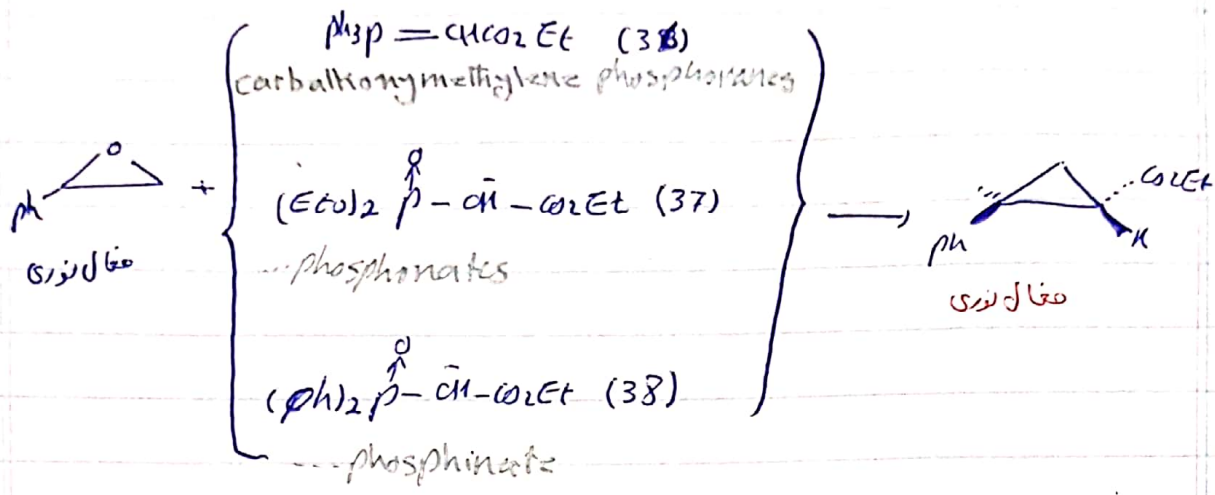 ph3p = CHCO2Et (36)
carbalkonymethylene phosphoranes
O
ph
+
فعال نوری
O
(EtO)2 P - C̄H - CO2Et (37)
...phosphonates
O
(ph)2 P - C̄H - CO2Et (38)
....phosphinate
CO2Et
ph
H
فعال نوری